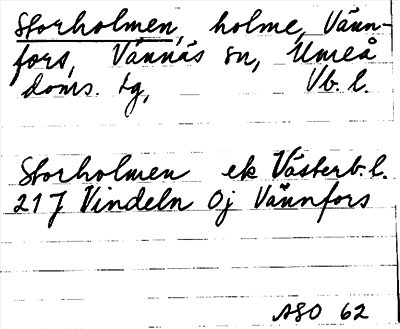 Storholmen, holme, Vänn-
fors, Vännäs sn, Umeå
doms. tg, Vb. l.
Storholmen ek Västerb. l.
21 J Vindeln Oj Vännfors
ASO 62